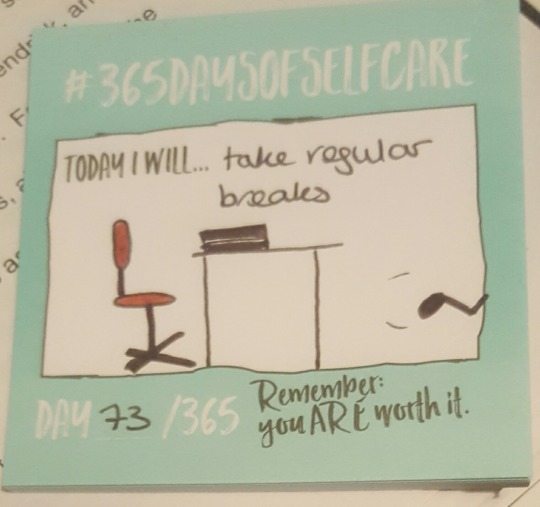 #365DAYSOFSELFCARE
TODAY I WILL... take regular
breaks
DAY 73 /365
Remember:
you ARE worth it.